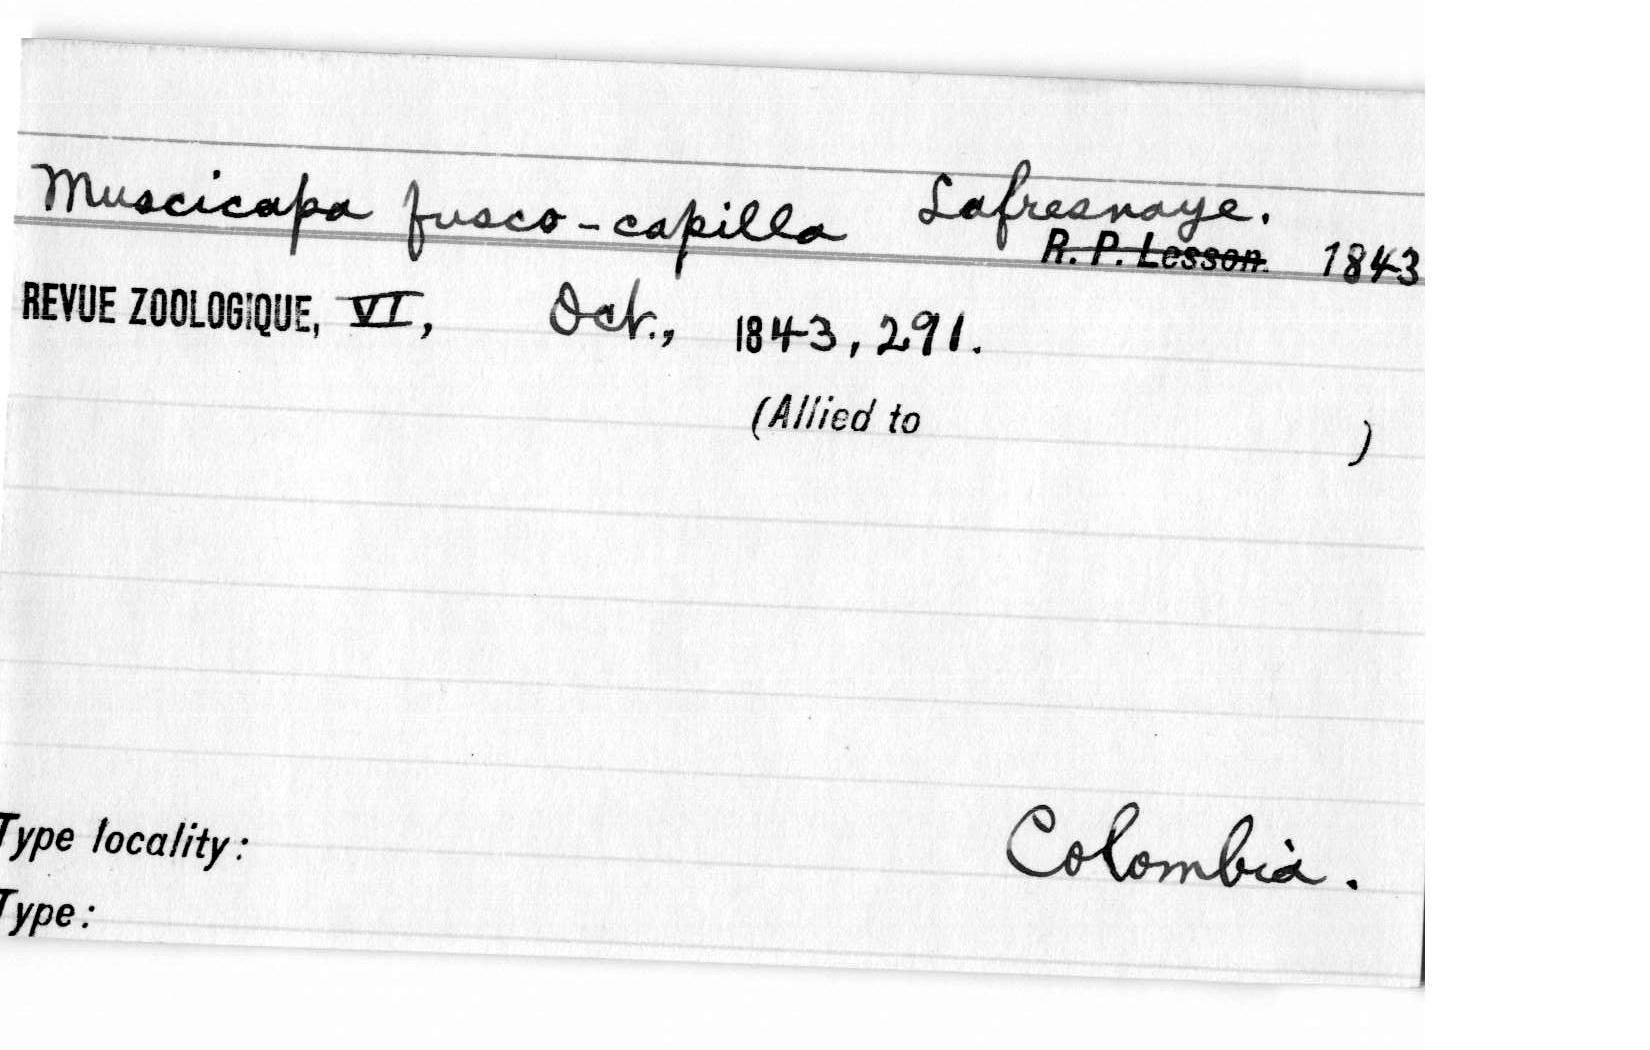 Muscicapa fusco-capilla Lafresnaye.
R. P. Lesson. 1843
REVUE ZOOLOGIQUE, VI, Oct., 1843, 291.
(Allied to )
Type locality: Colombia.
Type: